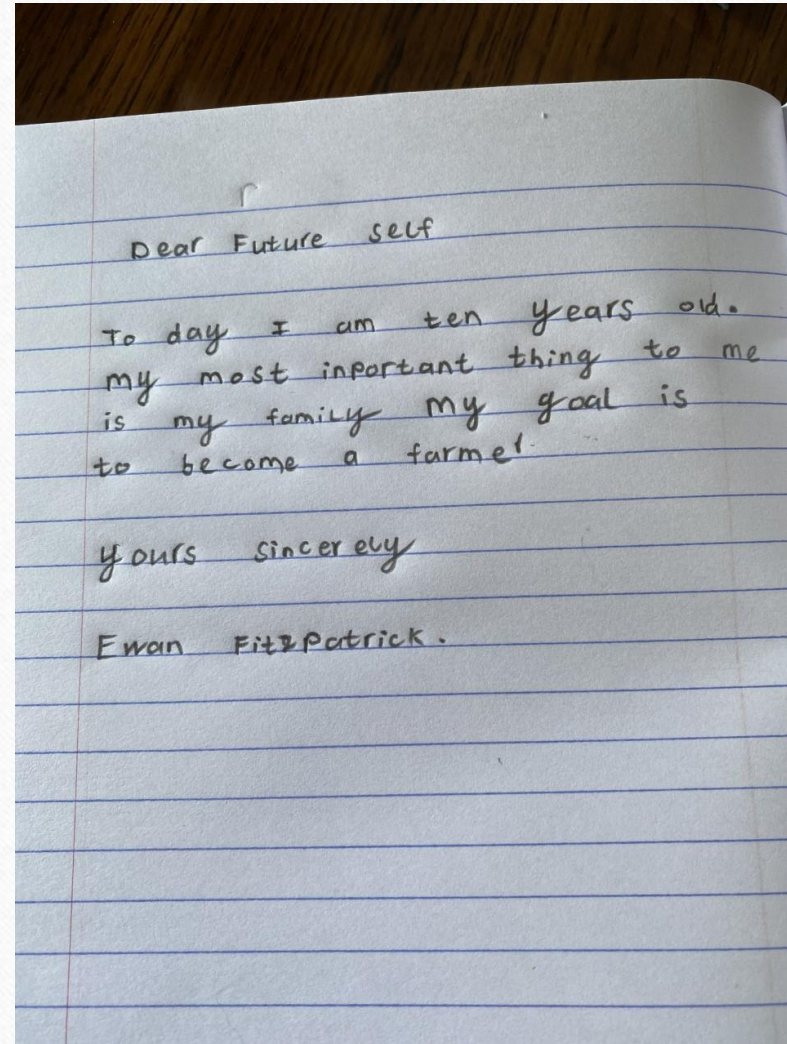 Dear Future self
To day I am ten years old.
my most inportant thing to me
is my family my goal is
to become a farmer.
yours sincerely
Ewan Fitzpatrick.